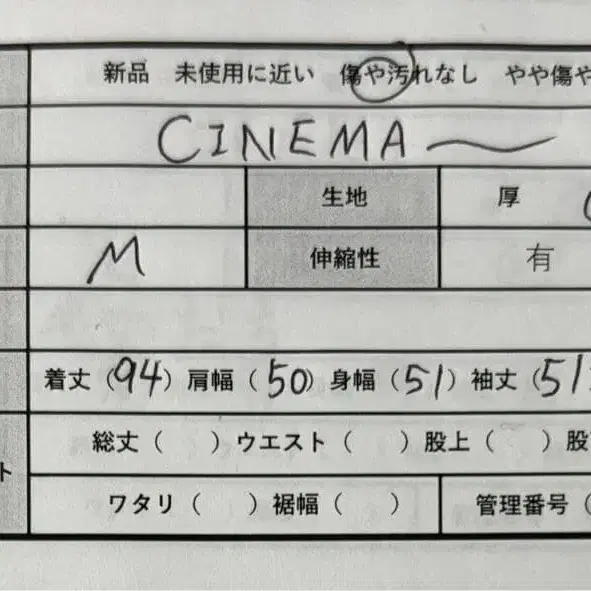 新品 未使用に近い 傷や汚れなし やや傷や
CINEMA～
生地 厚
M 伸縮性 有
着丈（94）肩幅（50）身幅（51）袖丈（51
総丈（ ）ウエスト（ ）股上（ ）股
ト
ワタリ（ ）裾幅（ ） 管理番号（